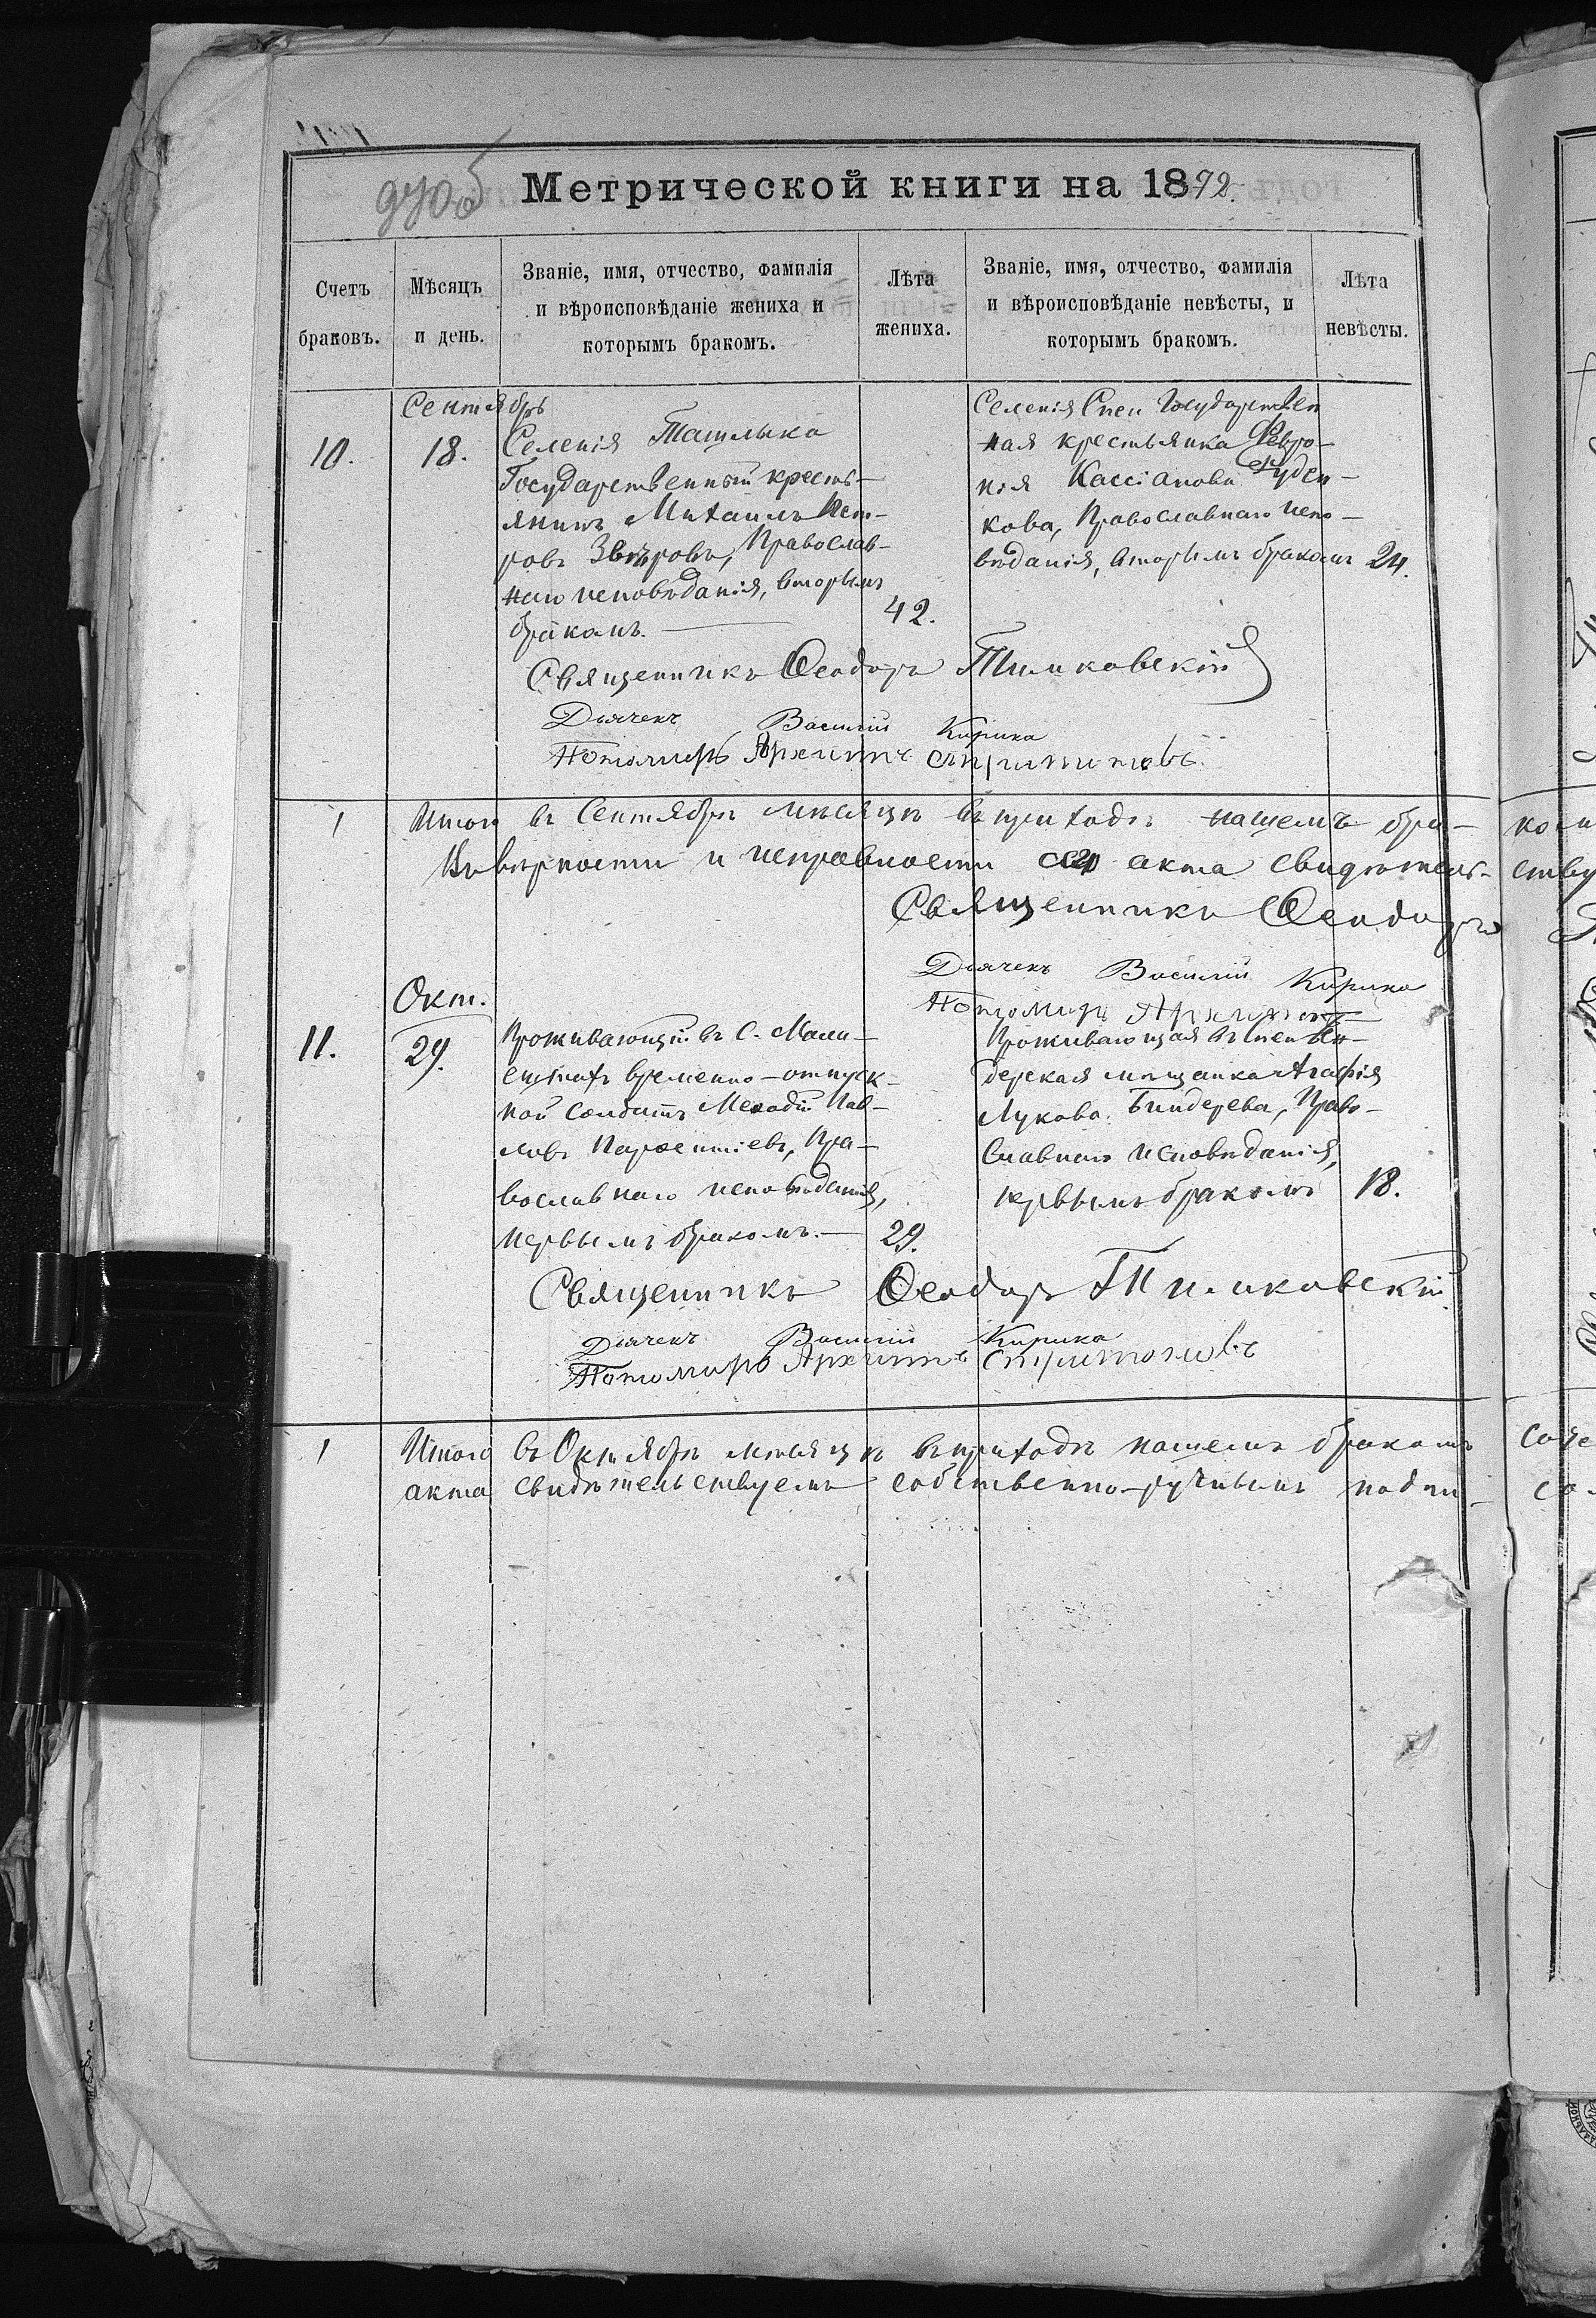 Метрической книги на 1872.
Счетъ браковъ.
Мѣсяцъ и день.
Званіе, имя, отчество, фамилія
и вѣроисповѣданіе жениха и
которымъ бракомъ.
Лѣта жениха.
Званіе, имя, отчество, фамилія
и вѣроисповѣданіе невѣсты, и
которымъ бракомъ.
Лѣта невѣсты.
Сентябрь
10.
18.
Селенія Ташлыка
Государственный кресть-
янинъ Михаилъ Пет-
ровъ Звѣровъ, Православ-
наго исповѣданія, вторымъ
бракомъ.
42.
Селенія Спеи Государствен
ная крестьянка Февро-
нія Кассіанова Руден-
кова, Православнаго испо-
вѣданія, вторымъ бракомъ
24.
Священникъ Ѳеодоръ Тимковскій
Дьячекъ Василій Кирика
Пономарь Архиппъ
1
Итого въ Сентябрѣ мѣсяцѣ въ приходѣ нашемъ бра-
Въ вѣрности и исправности сего акта свидѣтель-
Священникъ Ѳеодоръ
Дьячекъ Василій Кирика
Пономарь Архиппъ
Окт.
11.
29.
Проживающій въ с. Мали-
ештахъ временно-отпуск-
ной солдатъ Меѳодій Пав-
ловъ Парѳентіевъ, Пра-
вославнаго исповѣданія,
первымъ бракомъ.
29.
Проживающая въ Спеи Бен-
дерская мѣщанка Агафія
Лукова Биндерева, Право-
славнаго исповѣданія,
первымъ бракомъ
18.
Священникъ Ѳеодоръ Тимковскій
Дьячекъ Василій Кирика
Пономарь Архиппъ
1
Итого въ Октябрѣ мѣсяцѣ въ приходѣ нашемъ бракомъ
акта свидѣтельствуемъ собственно-ручнымъ подпи-